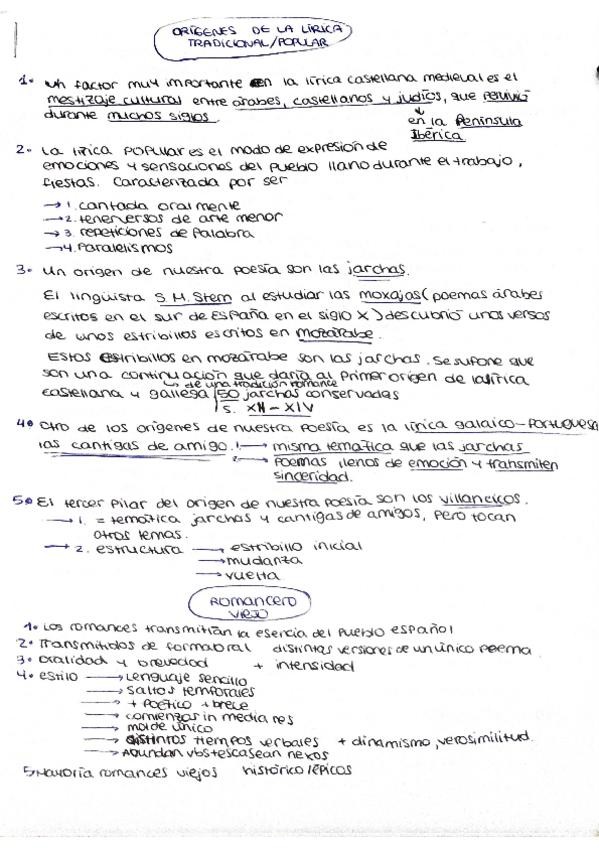 ORÍGENES DE LA LÍRICA
TRADICIONAL/POPULAR
1. Un factor muy importante en la lírica castellana medieval es el
mestizaje cultural entre árabes, castellanos y judíos, que pervivió
durante muchos siglos.
en la Península
Ibérica
2. La lírica POPULAR es el modo de expresión de
emociones y sensaciones del pueblo llano durante el trabajo,
fiestas. Caracterizada por ser
→ 1. cantada oralmente
→ 2. tener versos de arte menor
→ 3. repeticiones de palabra
→ 4. Paralelismos
3. Un origen de nuestra poesía son las jarchas.
El lingüista S. M. Stern al estudiar las moxajas (poemas árabes
escritos en el sur de España en el siglo X) descubrió unos versos
de unos estribillos escritos en mozárabe.
Estos estribillos en mozárabe son las jarchas. Se supone que
son una continuación que daría al primer origen de la lírica
↳ de una tradición romance
castellana y gallega 50 jarchas conservadas
s. XII - XIV
4. Otro de los orígenes de nuestra poesía es la lírica galaico-portuguesa
las cantigas de amigo. 1. → misma temática que las jarchas
2. → Poemas llenos de emoción y transmiten
sinceridad.
5. El tercer pilar del origen de nuestra poesía son los villancicos.
→ 1. = temática jarchas y cantigas de amigos, pero tocan
otros temas.
→ 2. estructura → estribillo inicial
→ mudanza
→ vuelta
ROMANCERO
VIEJO
1. Los romances transmitían la esencia del pueblo español
2. Transmitidos de forma oral distintas versiones de un único poema
3. Oralidad y brevedad + intensidad
4. estilo → Lenguaje sencillo
→ saltos temporales
→ + poético + breve
→ comienzos in media res
→ molde único
→ distintos tiempos verbales + dinamismo, verosimilitud.
→ Abundan vbs + escasean nexos
5. Mayoría romances viejos histórico/épicos